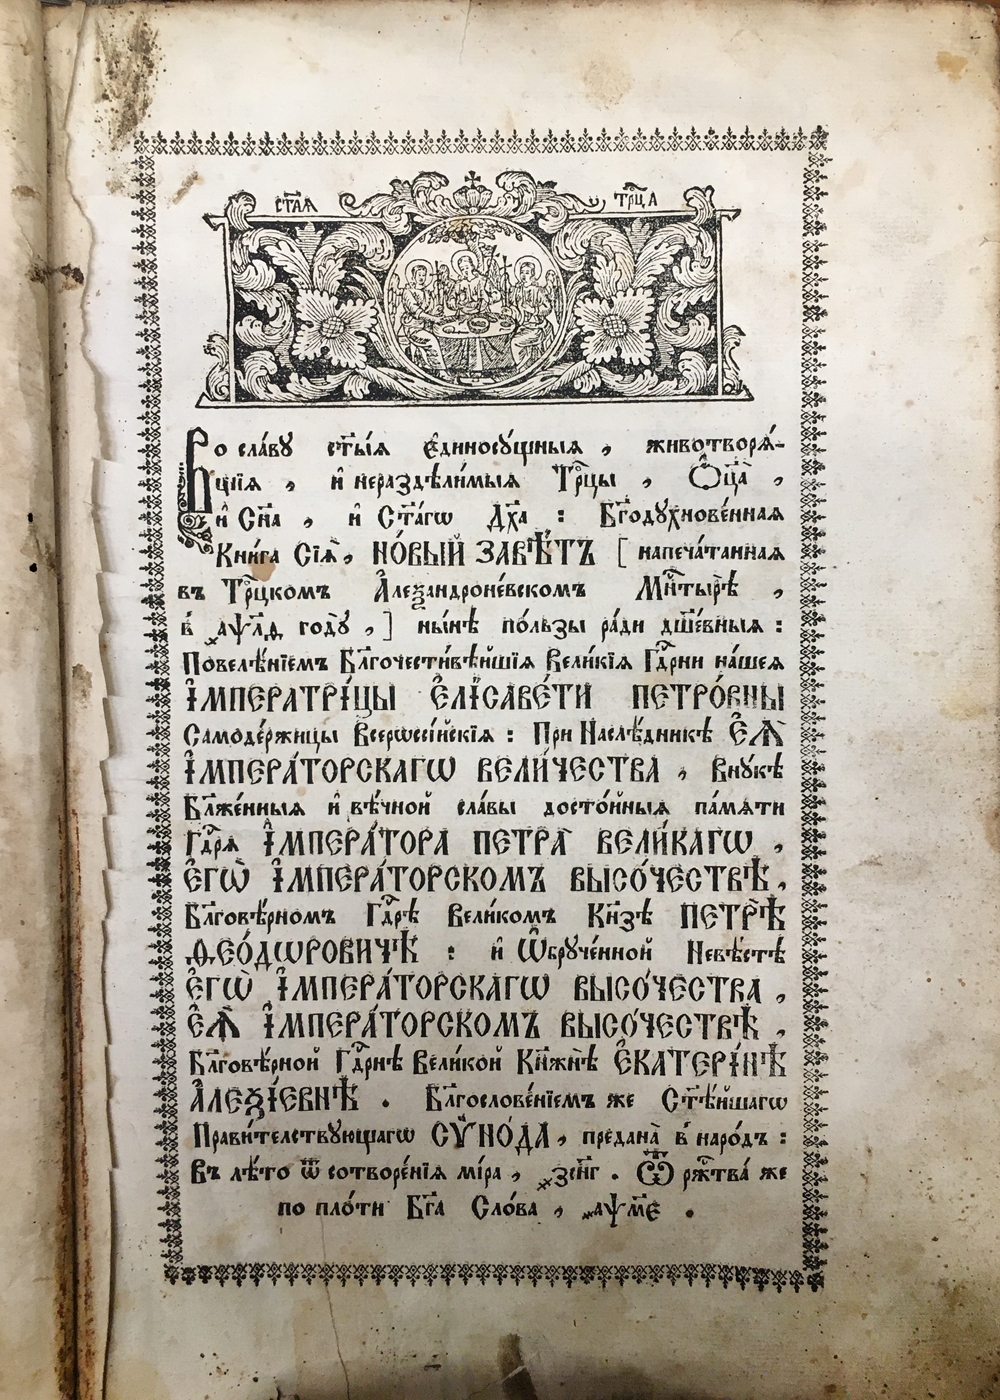 ст҃ая трⷪ҇ца
Во сла́вꙋ ст҃ы́ѧ є҆диносꙋ́щныѧ , животворѧ́-
щїѧ , и҆ нераздѣли́мыѧ Трⷪ҇цы , Ѻ҆ц҃а̀ ,
и҆ Сн҃а , и҆ Ст҃а́гѡ Дх҃а : Бг҃одꙋхнове́ннаѧ
Кни́га Сїѧ̀ , НО́ВЫЙ ЗАВѢ́ТЪ [ напеча́таннаѧ
въ Трⷪ҇цкомъ А҆леѯандроне́вскомъ Мнⷭ҇тырѣ̀ ,
в̾ ҂аѱл҃д годꙋ̀ , ] ны́нѣ по́льзы ра́ди дш҃е́вныѧ :
Повелѣ́нїемъ Бл҃гочести́вѣйшїѧ Вели́кїѧ Гдⷭ҇рни на́шеѧ
І҆МПЕРАТРІ́ЦЫ Є҆ЛІСАВЕ́ТИ ПЕТРО́ВНЫ
Самоде́ржицы Всерѡссі́йскїѧ : При Наслѣ́дникѣ Є҆Ѧ̀
І҆МПЕРА́ТОРСКАГѠ ВЕЛИ́ЧЕСТВА , Внꙋ́кѣ
Бл҃же́нныѧ и҆ вѣ́чной сла́вы досто́йныѧ па́мѧти
Гдⷭ҇рѧ І҆МПЕРА́ТОРА ПЕТРА̀ ВЕЛИ́КАГѠ ,
Є҆ГѠ̀ І҆МПЕРА́ТОРСКОМЪ ВЫСО́ЧЕСТВѢ ,
Бл҃говѣ́рномъ Гдⷭ҇рѣ Вели́комъ Кн҃зѣ ПЕТРѢ̀
Ѳ҆ЕО́ДѠРОВИЧѢ : и҆ Ѡ҆брꙋче́нной Невѣ́стѣ
Є҆ГѠ̀ І҆МПЕРА́ТОРСКАГѠ ВЫСО́ЧЕСТВА ,
Є҆Ѧ̀ І҆МПЕРА́ТОРСКОМЪ ВЫСО́ЧЕСТВѢ ,
Бл҃говѣ́рной Гдⷭ҇рнѣ Вели́кой Кн҃жнѣ̀ Є҆КАТЕРІ́НѢ
А҆ЛЕѮІ́ЕВНѢ . Бл҃гослове́нїемъ же Ст҃ѣ́йшагѡ
Прави́телствꙋющагѡ СѴ́НО́ДА , предана̀ в̾ наро́дъ :
Въ лѣ́то ѿ сотворе́нїѧ мі́ра , ҂зсн҃г . Ѿ рж҃тва́ же
по пло́ти Бг҃а Сло́ва , ҂аѱм҃е .